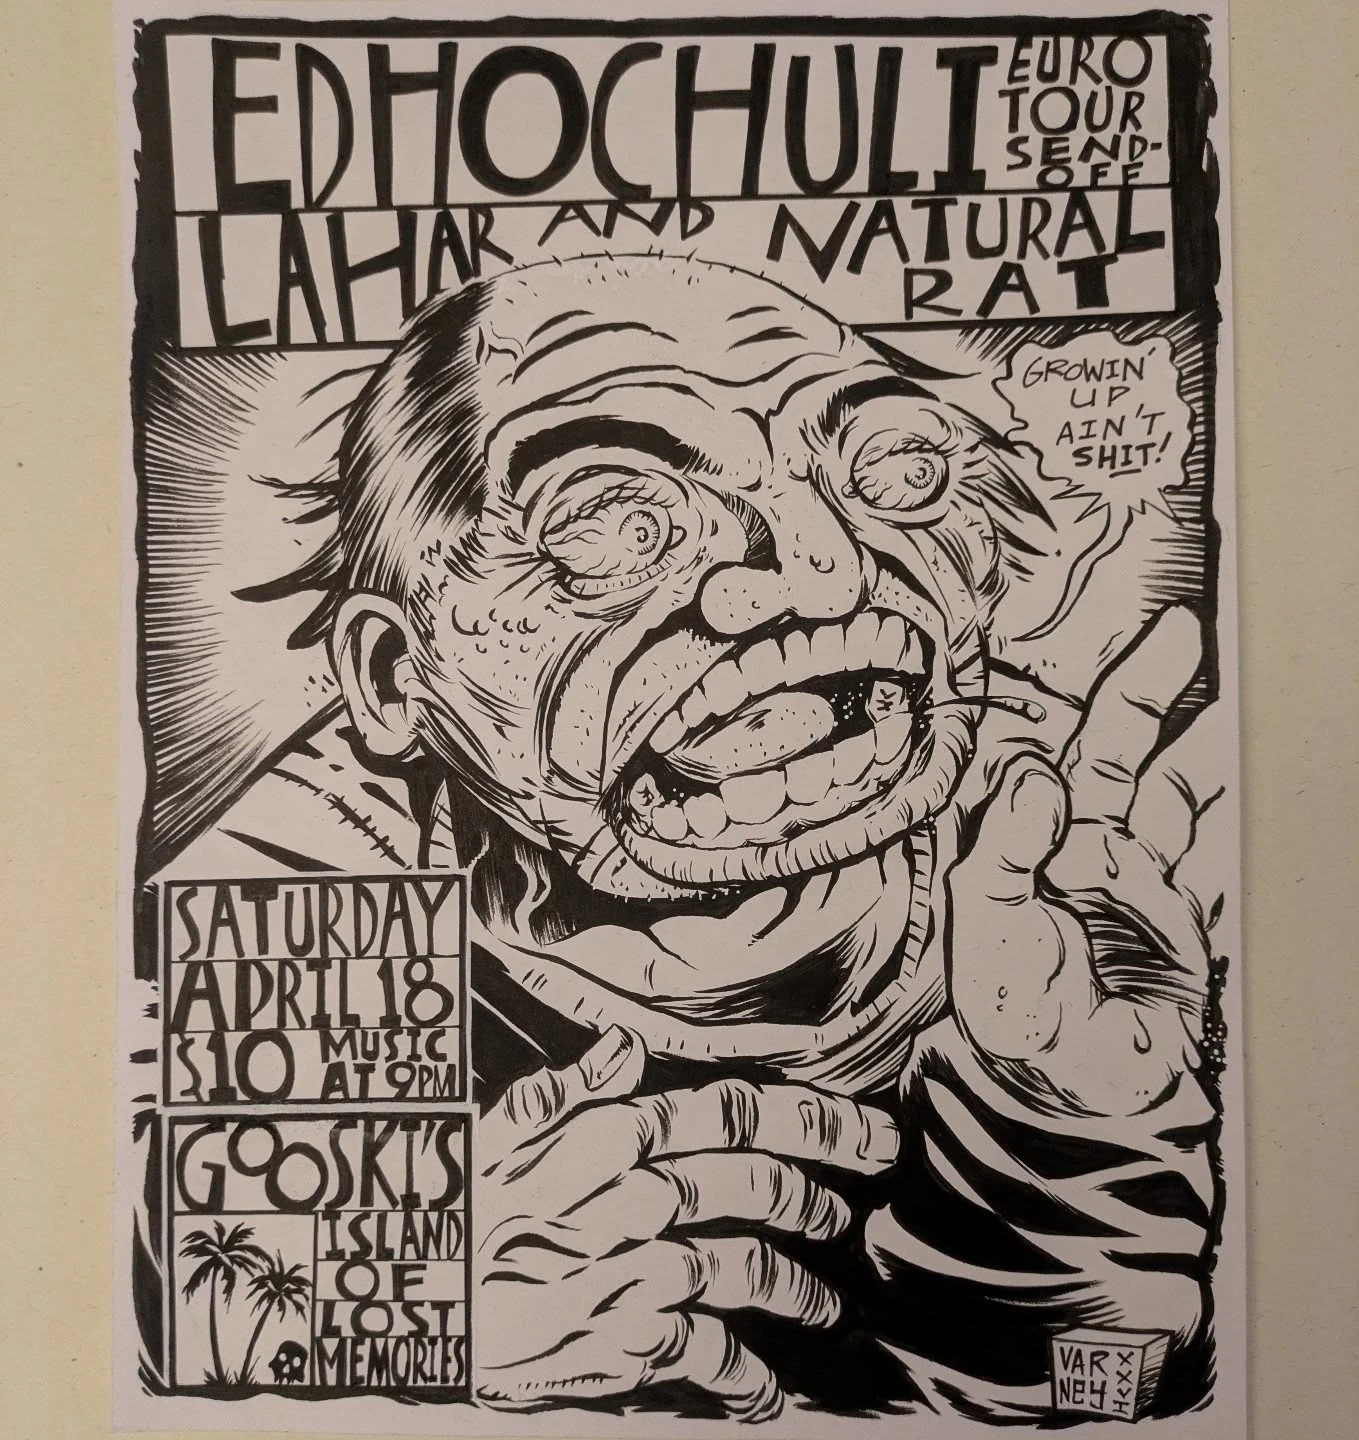 EDHOCHULI
EURO
TOUR
SEND-
OFF
LAHAR AND NATURAL
RAT
GROWIN'
UP
AIN'T
SHIT!
SATURDAY
APRIL 18
$10 MUSIC
AT 9PM
GOOSKI'S
ISLAND
OF
LOST
MEMORIES
VAR
NEY
XXVI